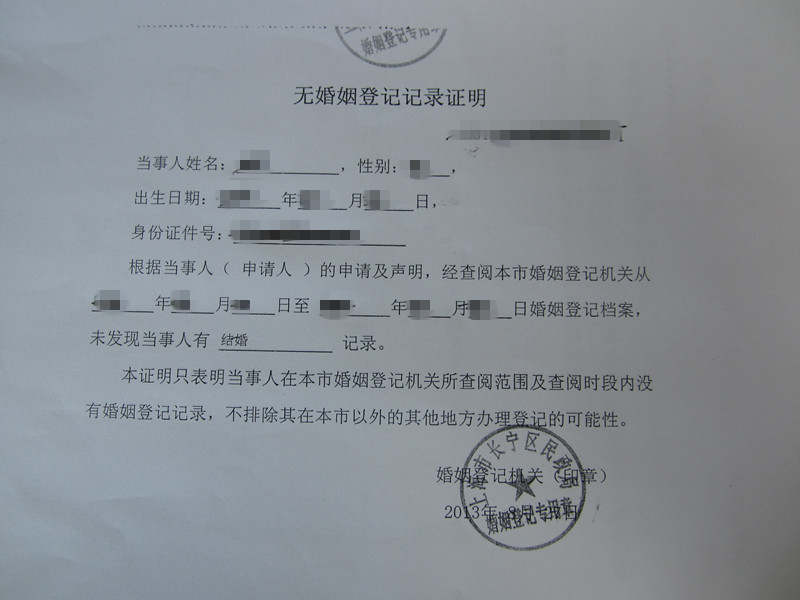 婚姻登记专用章
无婚姻登记记录证明
当事人姓名：，性别：，
出生日期：年月日，
身份证件号：
根据当事人（ 申请人 ）的申请及声明，经查阅本市婚姻登记机关从
年月日至年月日婚姻登记档案，
未发现当事人有 结婚 记录。
本证明只表明当事人在本市婚姻登记机关所查阅范围及查阅时段内没
有婚姻登记记录，不排除其在本市以外的其他地方办理登记的可能性。
上海市长宁区民政局
婚姻登记机关（印章）
2013年8月日
婚姻登记专用章